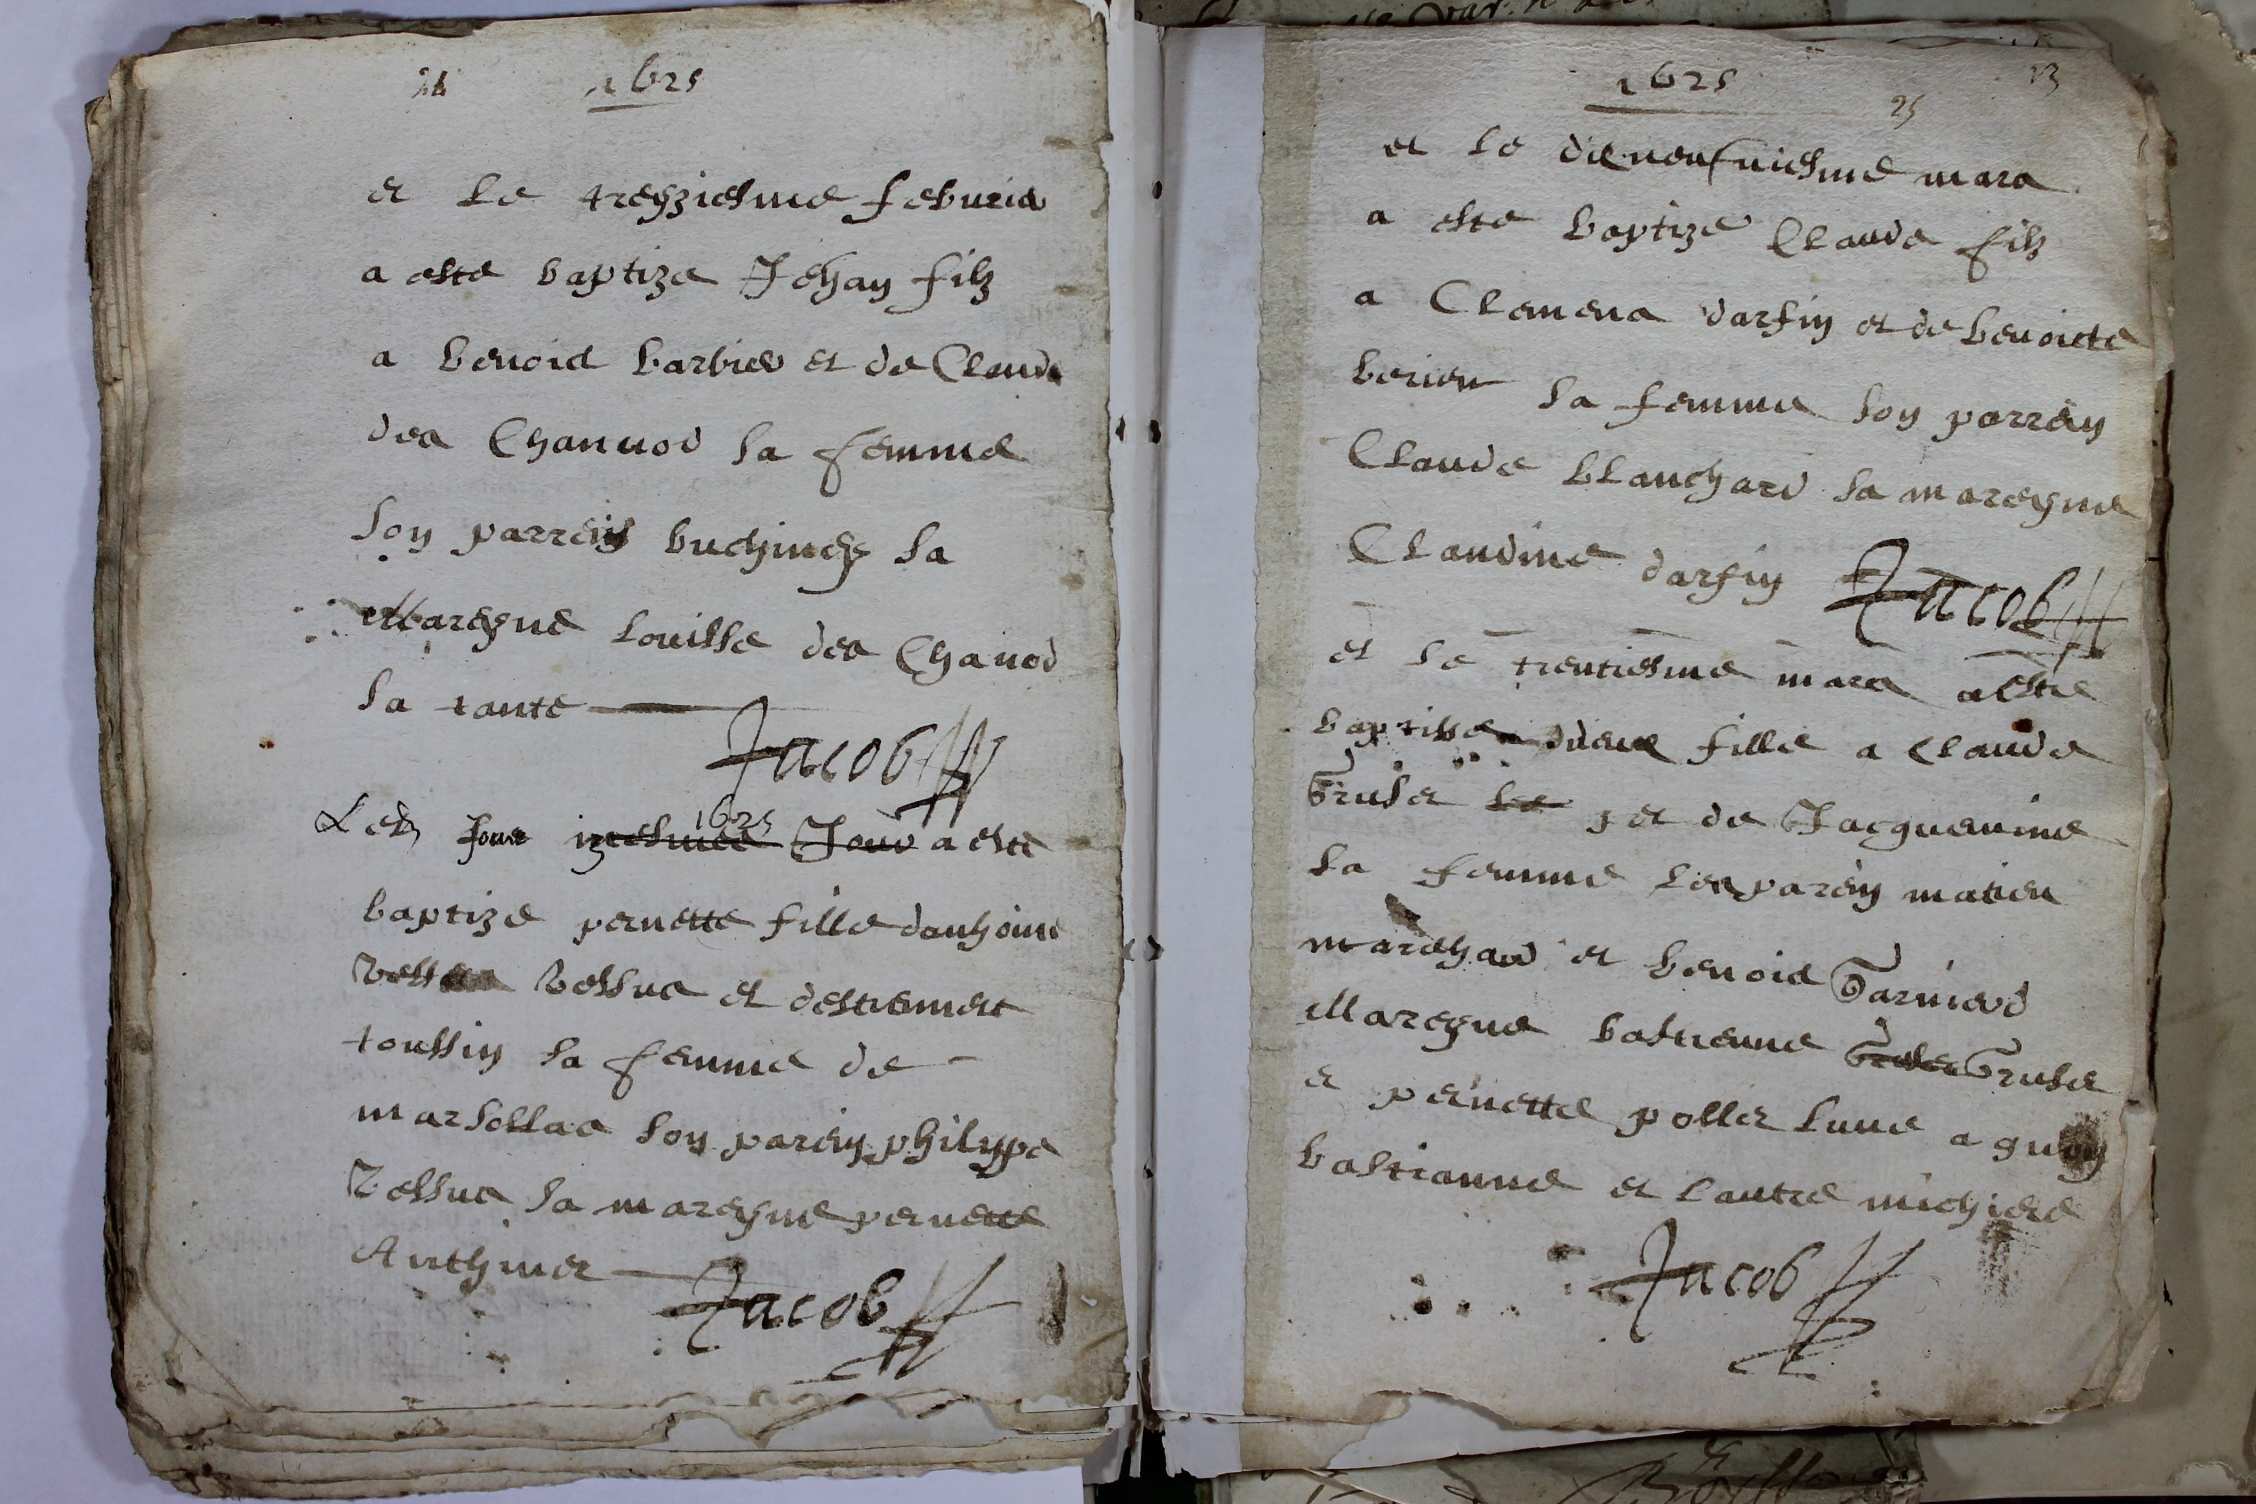 24 1625
et le treyziesme febvrier
a este baptize Jehan filz
a benoict barbier et de Claude
des Chanvod sa femme
son parrein buchinez sa
Mareyne Louisse des Chavod
sa tante
Jacob
Led Jour 1625 Jour a este
baptize pernette fille danthoine
Vessuz et destiennett
toussin sa femme de
marsollas son parein philippe
Vessuz sa mareyne pernette
Anthmer
Jacob
1625
25 13
et le dixneufviesme mars
a este baptize Claude filz
a Clement darfin et de benoicte
berier sa femme son parrein
Claude blanchard sa mareyne
Claudine darfin Jacob
et le trentiesme mars a este
baptisse fille a Claude
Gruset et de Jacquemine
sa femme les parein matieu
marchand et benoict Garnierd
Mareyne bastienne Gruset
et pernette pollet lune a nom
bastianne et lautre michiere
Jacob